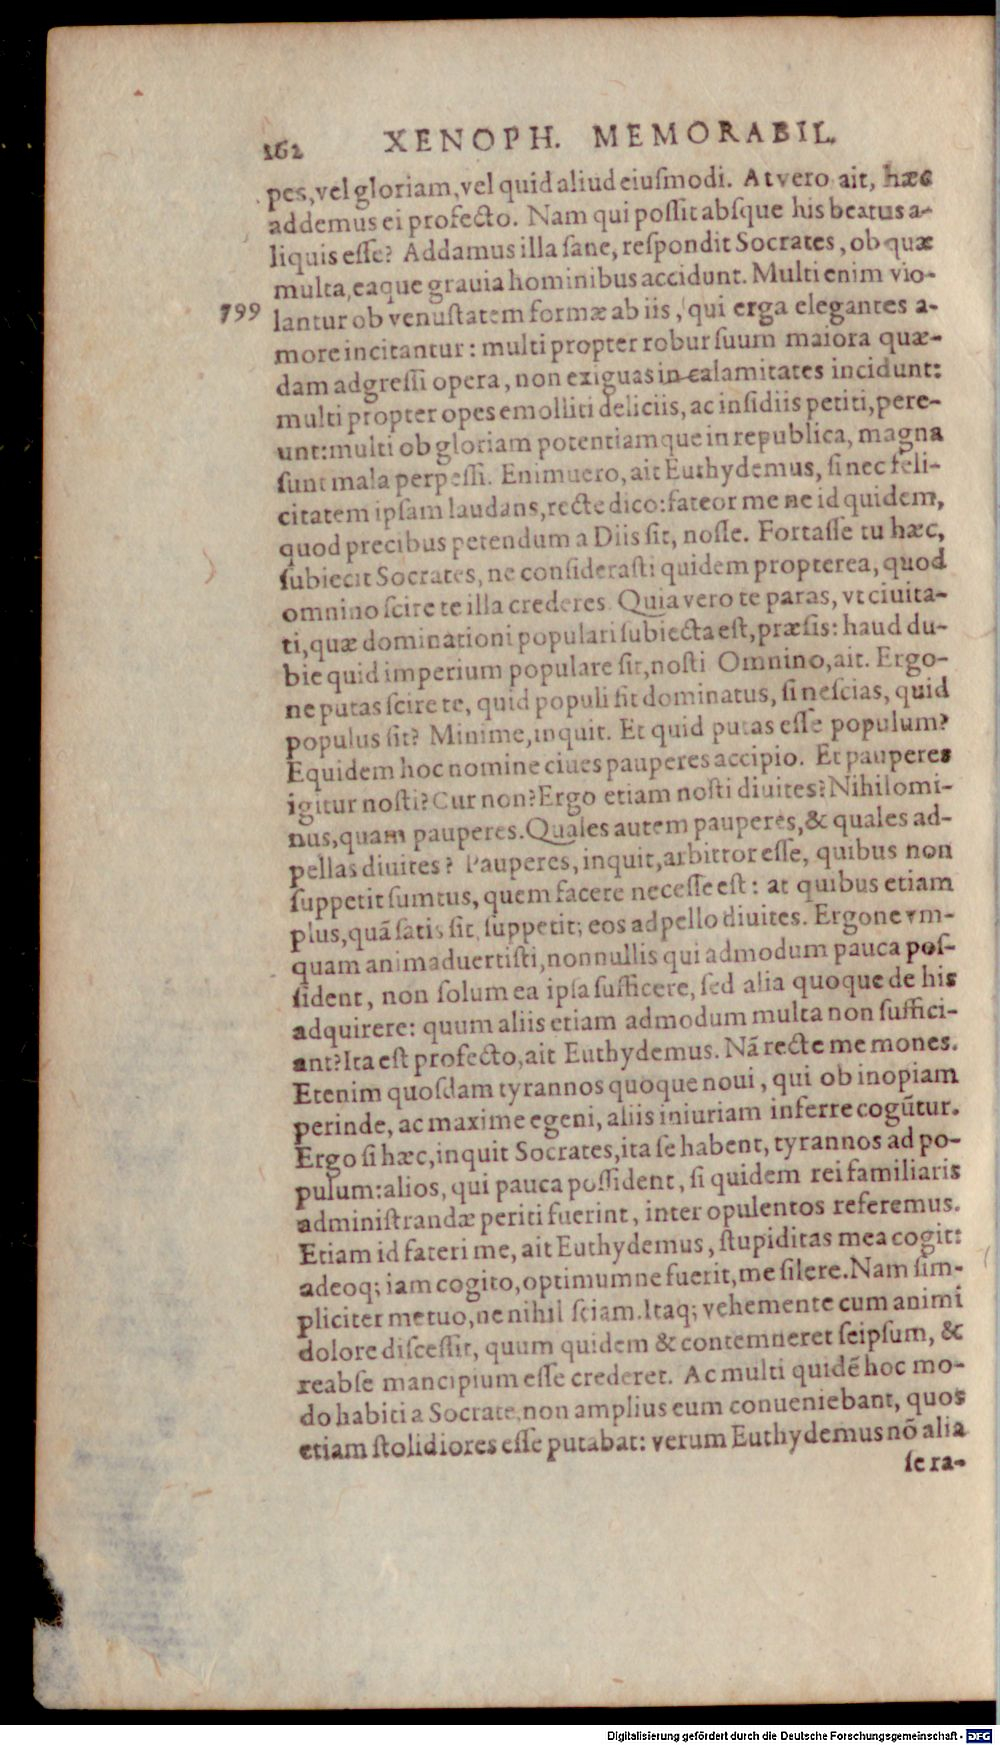 262 XENOPH. MEMORABIL.
pes, vel gloriam, vel quid aliud eiuſmodi. At vero ait, hæc
addemus ei profecto. Nam qui poſſit abſque his beatus a-
liquis eſſe? Addamus illa ſane, reſpondit Socrates, ob quæ
multa, eaque grauia hominibus accidunt. Multi enim vio-
799 lantur ob venuſtatem formæ ab iis, qui erga elegantes a-
more incitantur: multi propter robur ſuum maiora quæ-
dam adgreſſi opera, non exiguas in calamitates incidunt:
multi propter opes emolliti deliciis, ac inſidiis petiti, pere-
unt: multi ob gloriam potentiamque in republica, magna
ſunt mala perpeſſi. Enimuero, ait Euthydemus, ſi nec feli-
citatem ipſam laudans, recte dico: fateor me ne id quidem,
quod precibus petendum a Diis ſit, noſſe. Fortaſſe tu hæc,
ſubiecit Socrates, ne conſideraſti quidem propterea, quod
omnino ſcire te illa crederes. Quia vero te paras, vt ciuita-
ti, quæ dominationi populari ſubiecta eſt, præſis: haud du-
bie quid imperium populare ſit, noſti Omnino, ait. Ergo-
ne putas ſcire te, quid populi ſit dominatus, ſi neſcias, quid
populus ſit? Minime, inquit. Et quid putas eſſe populum?
Equidem hoc nomine ciues pauperes accipio. Et pauperes
igitur noſti? Cur non? Ergo etiam noſti diuites? Nihilomi-
nus, quam pauperes. Quales autem pauperes, & quales ad-
pellas diuites? Pauperes, inquit, arbitror eſſe, quibus non
ſuppetit ſumtus, quem facere neceſſe eſt: at quibus etiam
plus, quã ſatis ſit, ſuppetit; eos adpello diuites. Ergone vm-
quam animaduertiſti, nonnullis qui admodum pauca poſ-
ſident, non ſolum ea ipſa ſufficere, ſed alia quoque de his
adquirere: quum aliis etiam admodum multa non ſuffici-
ant? Ita eſt profecto, ait Euthydemus. Nã recte me mones.
Etenim quoſdam tyrannos quoque noui, qui ob inopiam
perinde, ac maxime egeni, aliis iniuriam inferre cogũtur.
Ergo ſi hæc, inquit Socrates, ita ſe habent, tyrannos ad po-
pulum: alios, qui pauca poſſident, ſi quidem rei familiaris
adminiſtrandæ periti fuerint, inter opulentos referemus.
Etiam id fateri me, ait Euthydemus, ſtupiditas mea cogit:
adeoq; iam cogito, optimumne fuerit, me ſilere. Nam ſim-
pliciter metuo, ne nihil ſciam. Itaq; vehemente cum animi
dolore diſceſſit, quum quidem & contemneret ſeipſum, &
reabſe mancipium eſſe crederet. Ac multi quidẽ hoc mo-
do habiti a Socrate, non amplius eum conueniebant, quos
etiam ſtolidiores eſſe putabat: verum Euthydemus nõ alia
ſe ra-
Digitalisierung gefördert durch die Deutsche Forschungsgemeinschaft - DFG